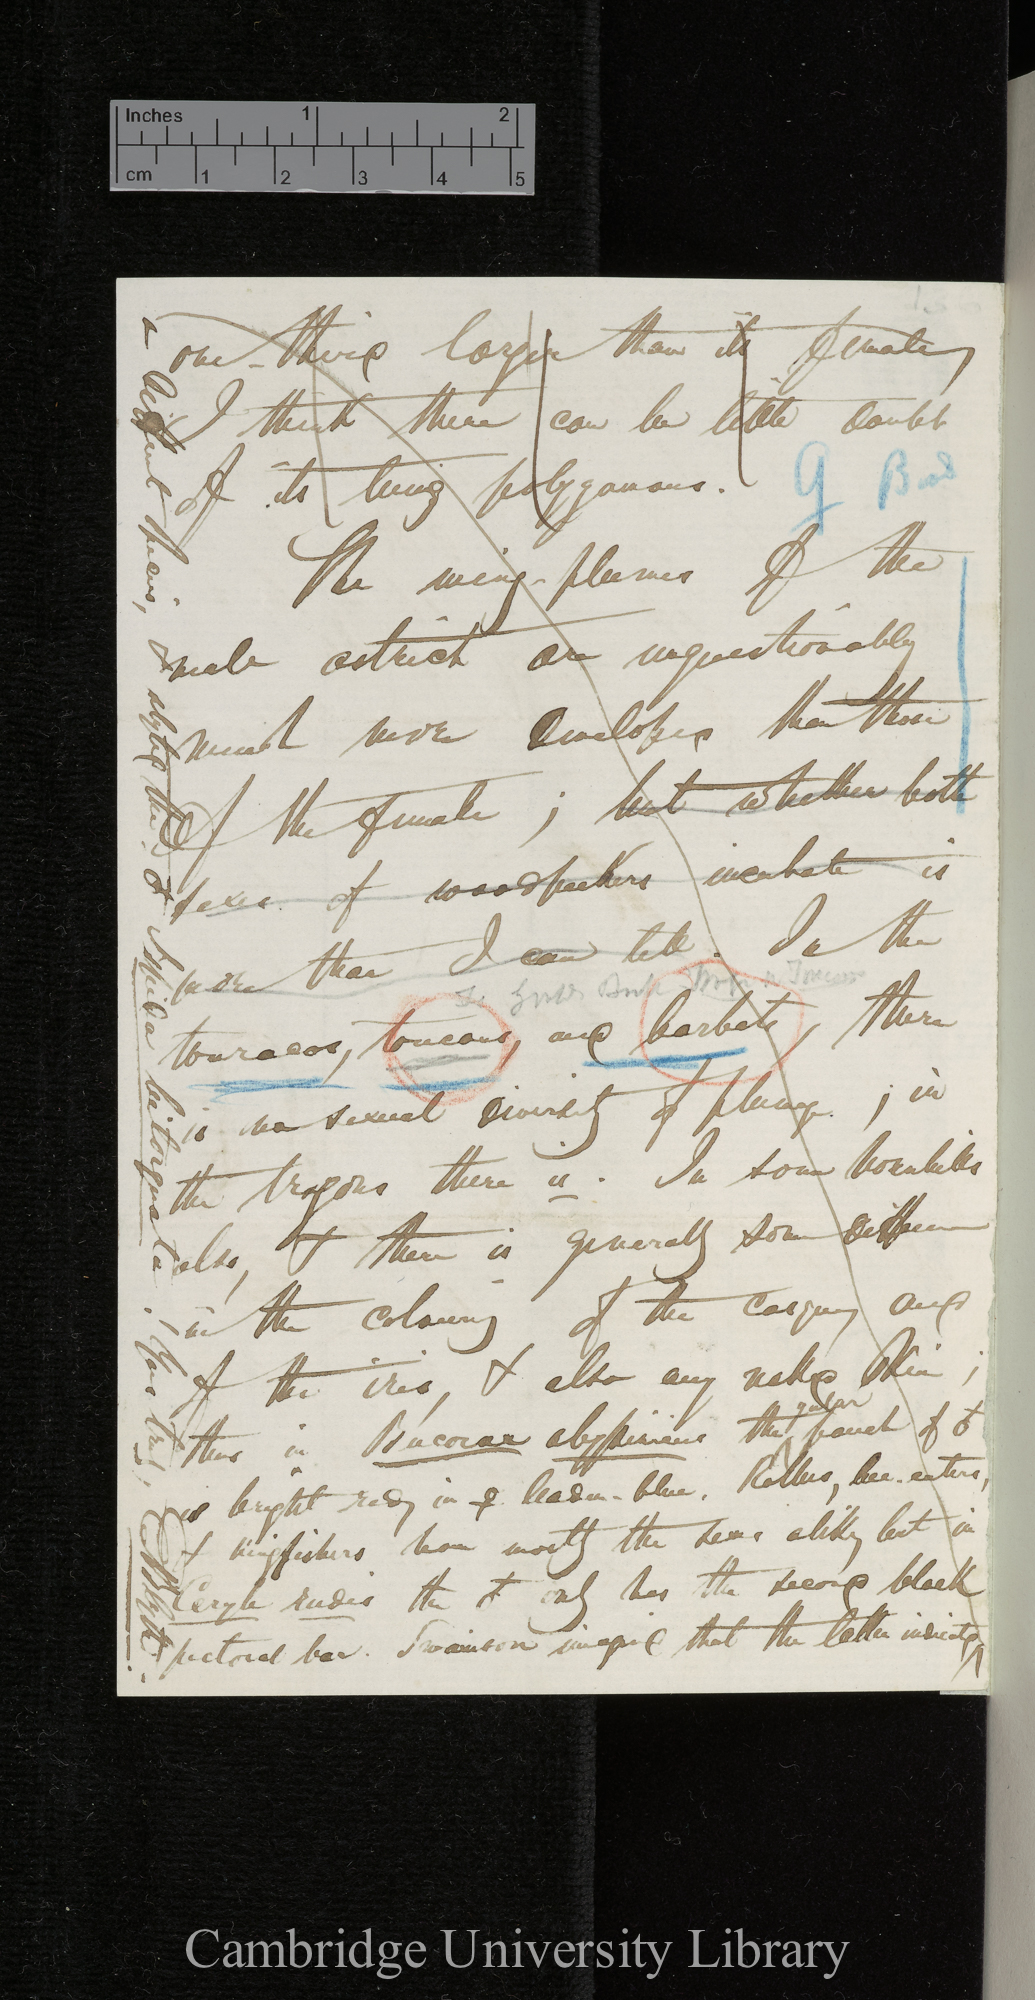 Inches 1 2
cm 1 2 3 4 5
one-third larger than its female,
I think there can be little doubt
of its being polygamous.
The wing-plumes of the
male ostrich are unquestionably
much more developed than those
of the female; but whether both
sexes of woodpeckers incubate is
more than I can tell. In the
touracos, toucans, and barbets, there
is no sexual diversity of plumage; in
the trogons there is. In some hornbills
also, & there is generally some difference
in the colouring of the casque, and
of the iris, & also any naked skin;
thus in Bucorax abyssinicus the gular pouch of ♂
is bright red, in ♀ leaden-blue. Rollers, bee-eaters,
& kingfishers have mostly the sexes alike, but in
Ceryle rudis the ♂ only has the second black
pectoral bar. Swainson imagined that the latter indicated
a different species, & styled the ♂ Ispida bitorquata.
Yours truly, E Blyth.
Cambridge University Library